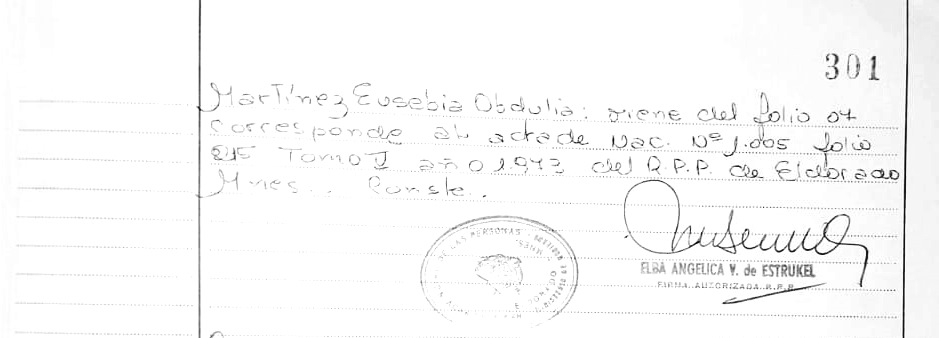 301
Martínez Eusebia Obdulia: viene del folio 07
Corresponde al acta de Nac. Nº 1.005 folio
Tomo I año 1.973 del R.P.P. de Eldorado
Mnes.. Conste..
ELBA ANGELICA V. de ESTRUKEL
FIRMA AUTORIZADA R.P.P.
DE LAS PERSONAS